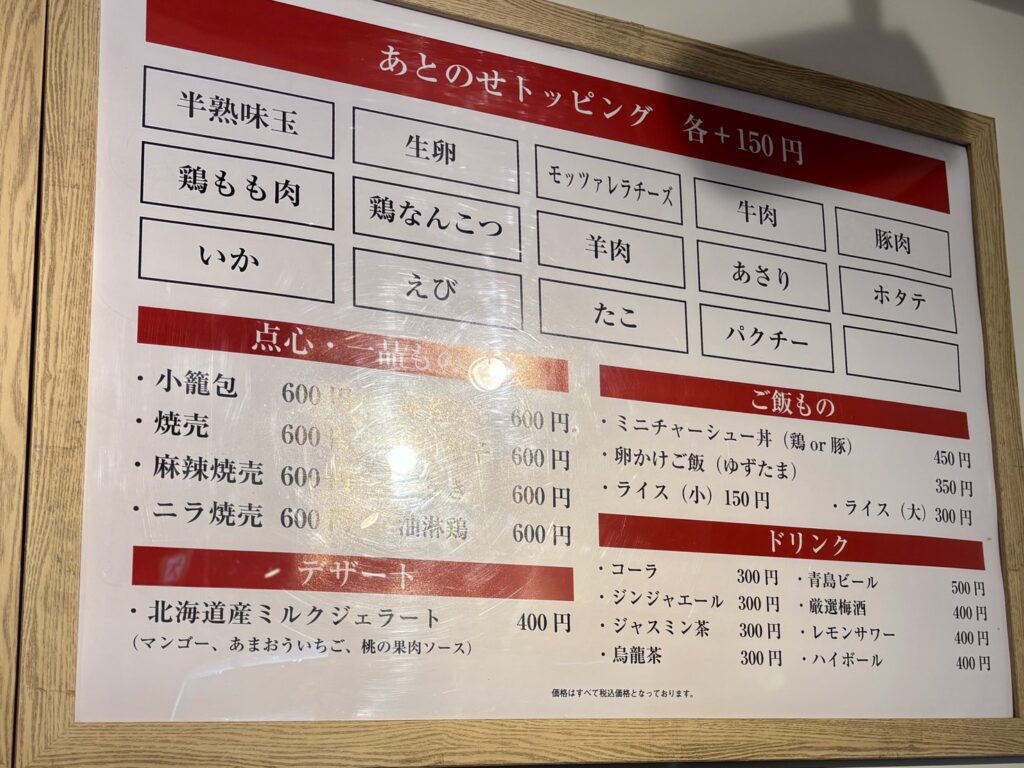 あとのせトッピング 各＋150円
半熟味玉
生卵
モッツァレラチーズ
牛肉
豚肉
鶏もも肉
鶏なんこつ
羊肉
あさり
ホタテ
いか
えび
たこ
パクチー
点心・一品もの
・小籠包 600円
・焼売 600円
・麻辣焼売 600円
・ニラ焼売 600円
600円
600円
600円
油淋鶏 600円
デザート
・北海道産ミルクジェラート 400円
（マンゴー、あまおういちご、桃の果肉ソース）
ご飯もの
・ミニチャーシュー丼（鶏or豚） 450円
・卵かけご飯（ゆずたま） 350円
・ライス（小）150円 ・ライス（大）300円
ドリンク
・コーラ 300円
・ジンジャエール 300円
・ジャスミン茶 300円
・烏龍茶 300円
・青島ビール 500円
・厳選梅酒 400円
・レモンサワー 400円
・ハイボール 400円
価格はすべて税込価格となっております。